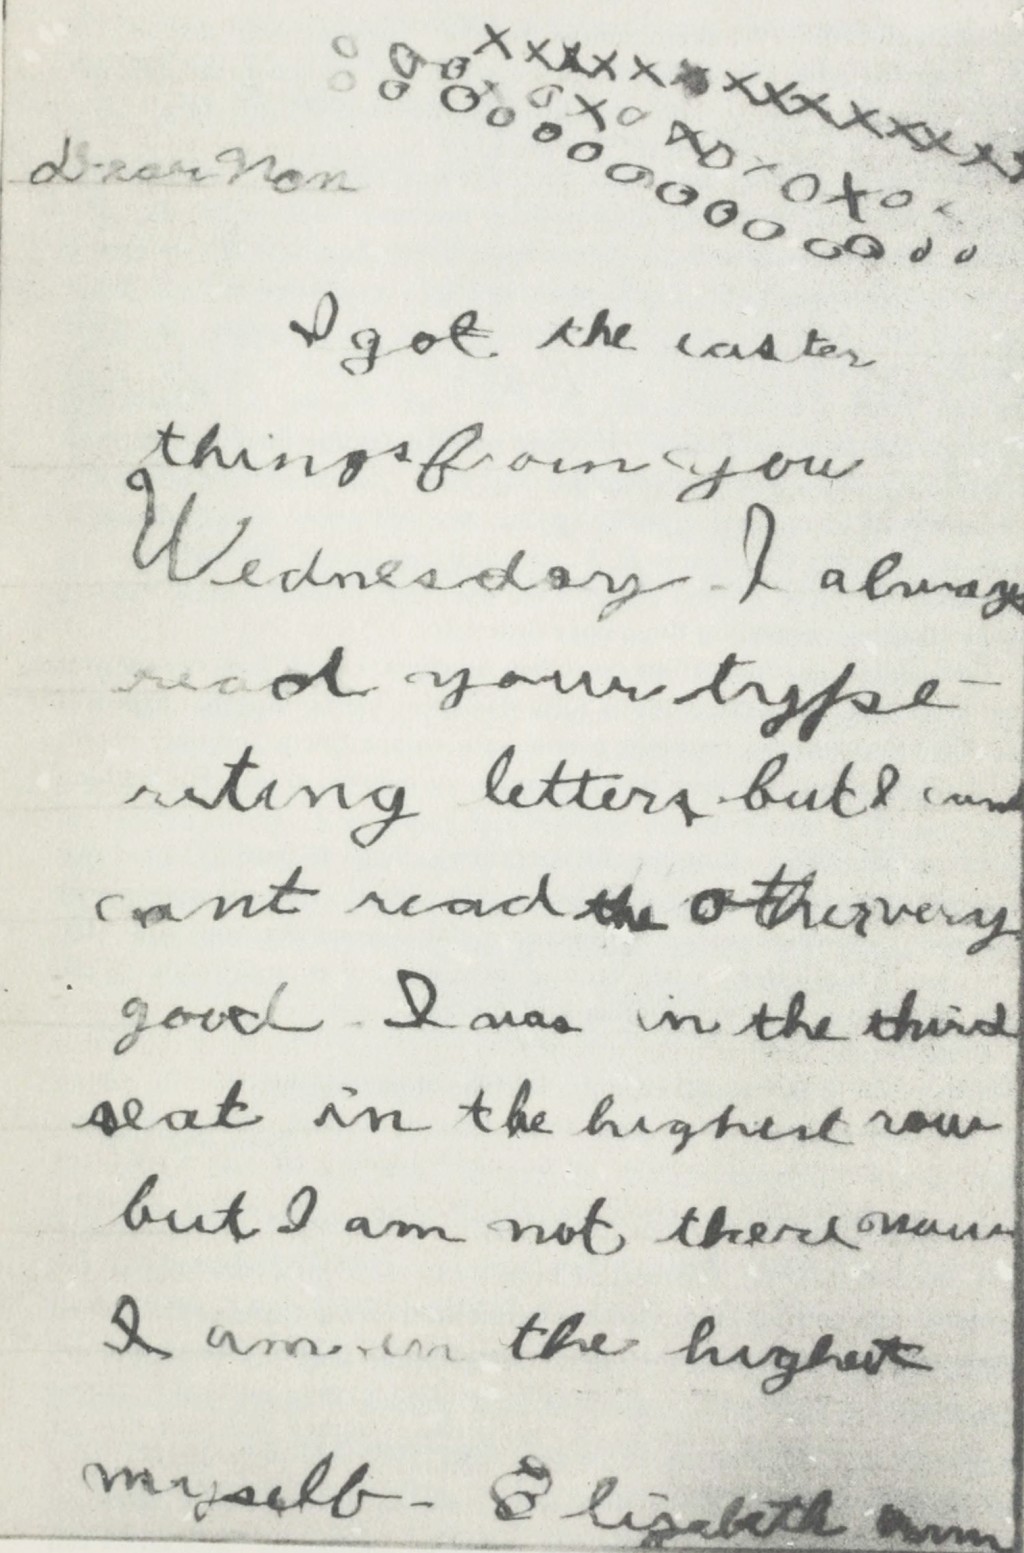 Dear Non
I got the easter
things from you
Wednesday. I always
read your type-
riting letters but I
cant read the other very
good. I was in the third
seat in the highest row
but I am not there now
I am in the highest
myself - Elizabeth Ann